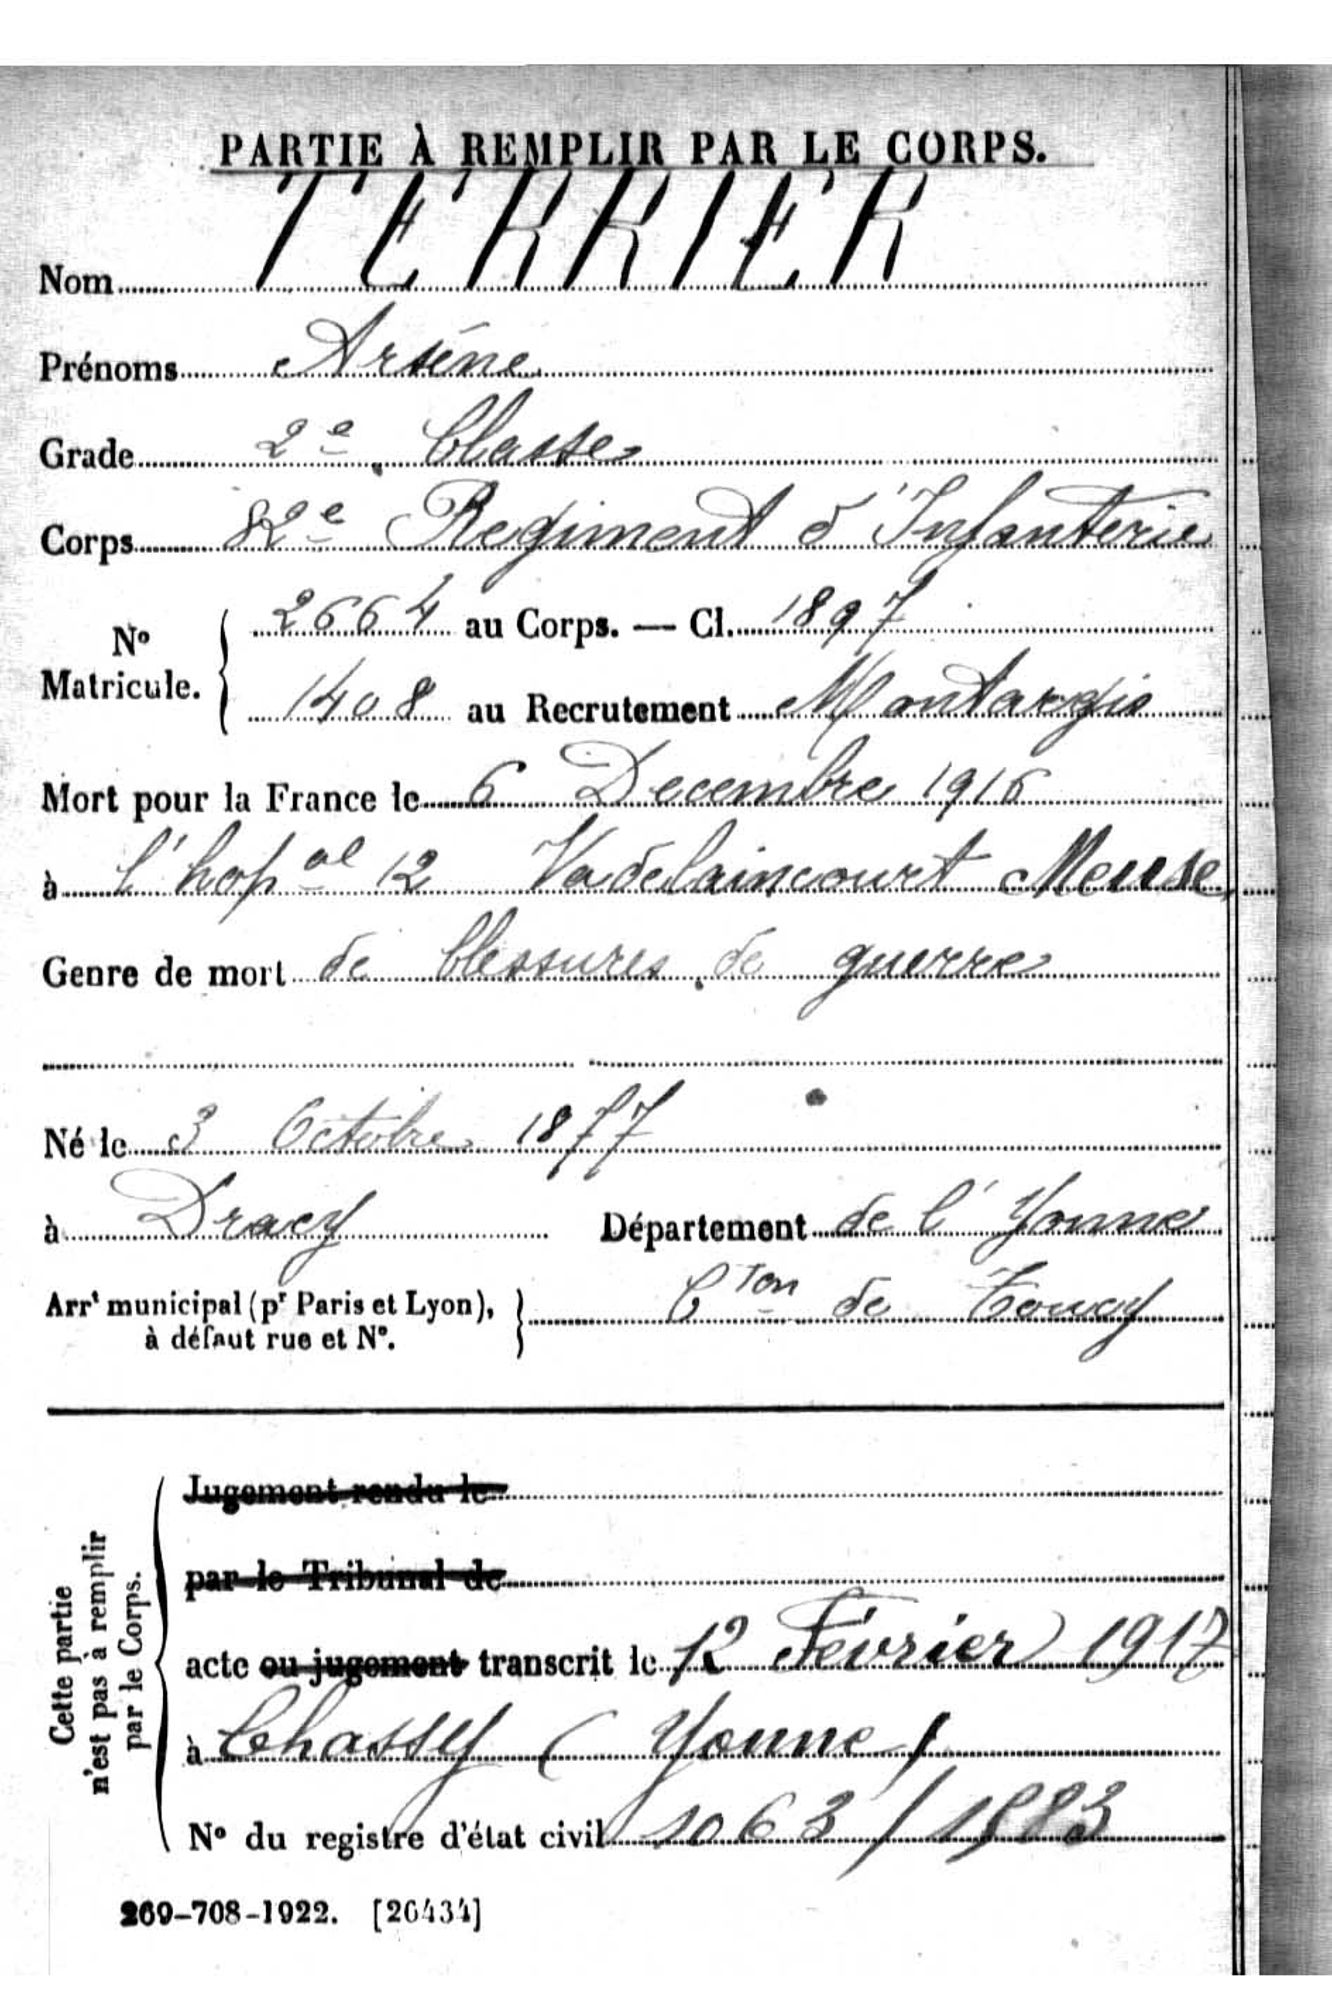 PARTIE À REMPLIR PAR LE CORPS.
Nom TERRIER
Prénoms Arsène
Grade 2e Classe
Corps 82e Regiment d'Infanterie
No Matricule. 2664 au Corps. — Cl. 1897
1408 au Recrutement Montargis
Mort pour la France le 6 Decembre 1916
à l'hopal 12 Vadelaincourt Meuse
Genre de mort de blessures de guerre
Né le 3 Octobre 1877
à Dracy Département de l'Yonne
Arrt municipal (pr Paris et Lyon), à défaut rue et No. Cton de Toucy
Cette partie n'est pas à remplir par le Corps.
Jugement rendu le
par le Tribunal de
acte ou jugement transcrit le 12 Février 1917
à Chassy (Yonne)
No du registre d'état civil 1063 / 1883
269-708-1922. [26434]